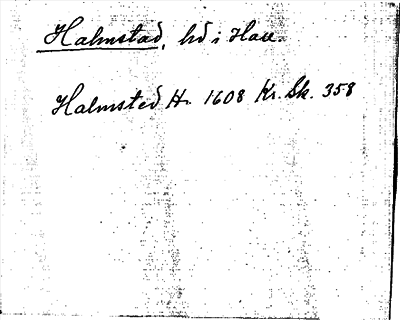 Halmstad, hd i Hall.
Halmsted H. 1608 Kr. Sk. 358